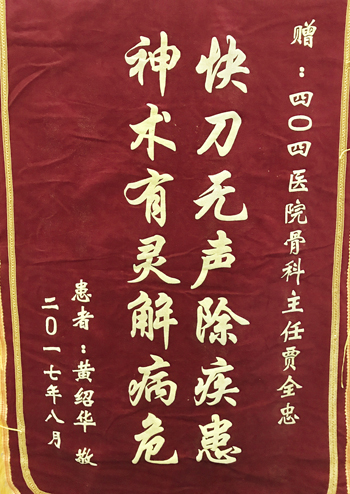 赠：四〇四医院骨科主任贾全忠
快刀无声除疾患
神术有灵解病危
患者：黄绍华 敬
二〇一七年八月